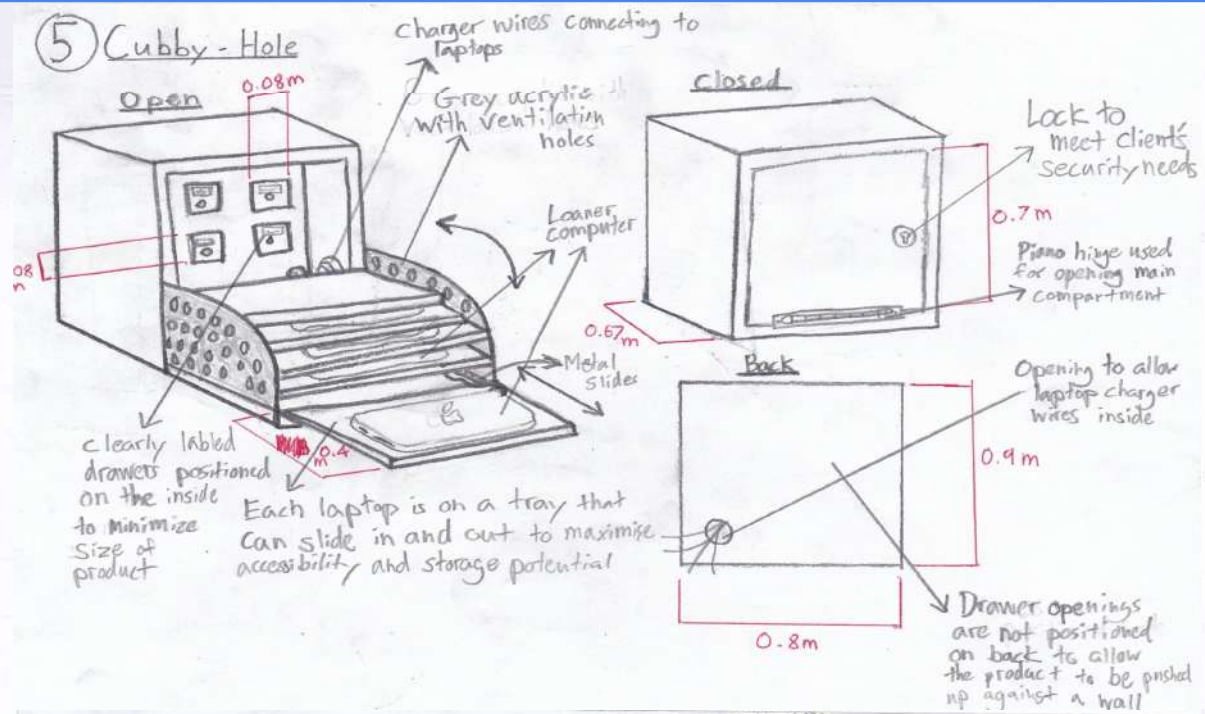 5 Cubby-Hole
Open
0.08m
Charger wires connecting to
laptops
Grey acrylic
with ventilation
holes
Loaner
computer
Metal
slides
08
m
0.4
m
clearly labled
drawers positioned
on the inside
to minimize
size of
product
Each laptop is on a tray that
can slide in and out to maximise
accessibility and storage potential
closed
Lock to
meet client's
security needs
0.7m
Piano hinge used
for opening main
compartment
0.67m
Back
Opening to allow
laptop charger
wires inside
0.9m
0.8m
Drawer openings
are not positioned
on back to allow
the product to be pushed
up against a wall